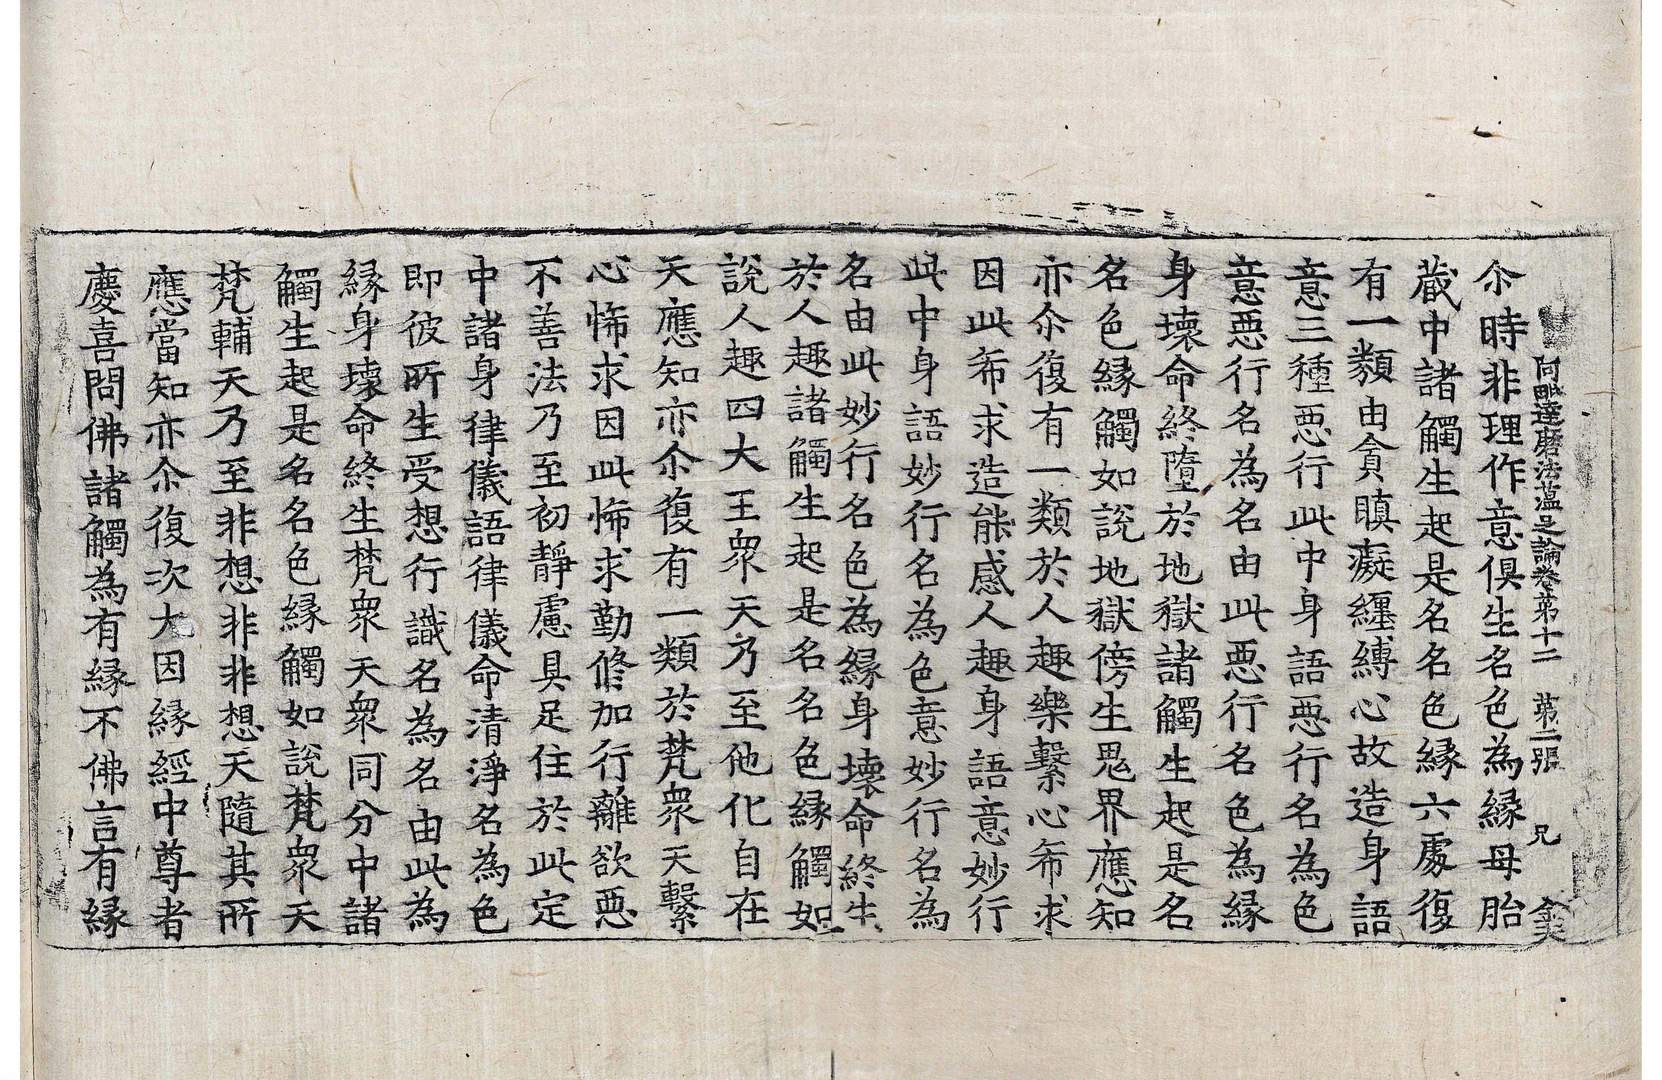 阿毗達磨法蕴足論卷第十二　第二張　兄
尒時非理作意俱生名色為緣母胎
蔵中諸觸生起是名名色緣六處復
有一類由貪瞋癡纏縛心故造身語
意三種惡行此中身語惡行名為色
意惡行名為名由此惡行名色為緣
身壞命終墮於地獄諸觸生起是名
名色緣觸如說地獄傍生鬼界應知
亦尒復有一類於人趣樂繫心希求
因此希求造能感人趣身語意妙行
此中身語妙行名為色意妙行名為
名由此妙行名色為緣身壞命終生
於人趣諸觸生起是名名色緣觸如
說人趣四大王眾天乃至他化自在
天應知亦尒復有一類於梵眾天繫
心悕求因此悕求勤修加行離欲惡
不善法乃至初靜慮具足住於此定
中諸身律儀語律儀命清淨名為色
即彼所生受想行識名為名由此為
緣身壞命終生梵眾天眾同分中諸
觸生起是名名色緣觸如說梵眾天
梵輔天乃至非想非非想天隨其所
應當知亦尒復次大因緣經中尊者
慶喜問佛諸觸為有緣不佛言有緣